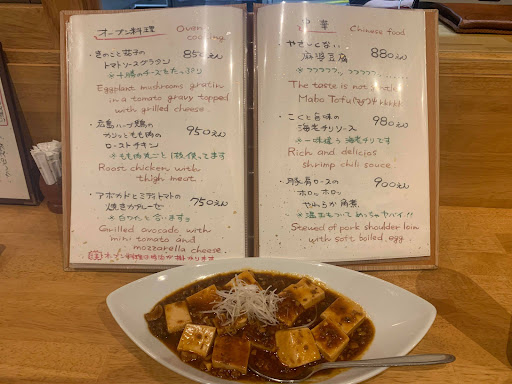 オーブン料理 Oven cooking
きのこと茄子の
トマトソースグラタン 850えん
Eggplant mushrooms gratin
in a tomato gravy topped
with grilled cheese.
広島ハーブ鶏の
カリッともも肉の
ローストチキン 950えん
Roast chicken with
thigh meat.
アボカドとミニトマトの
焼きカプレーゼ 750えん
Grilled avocado with
mini tomato and
mozzarella cheese.
中華 Chinese food
やさしくない
麻婆豆腐 880えん
The taste is not
Mabo Tofu
こくと旨味の
海老チリソース 980えん
※一味違う海老チリです
Rich and delicias
shrimp chili sauce.
豚肩ロースの
ホロッホロッ
やわらか角煮 900えん
Stewed of pork shoulder loin
with soft boiled egg.